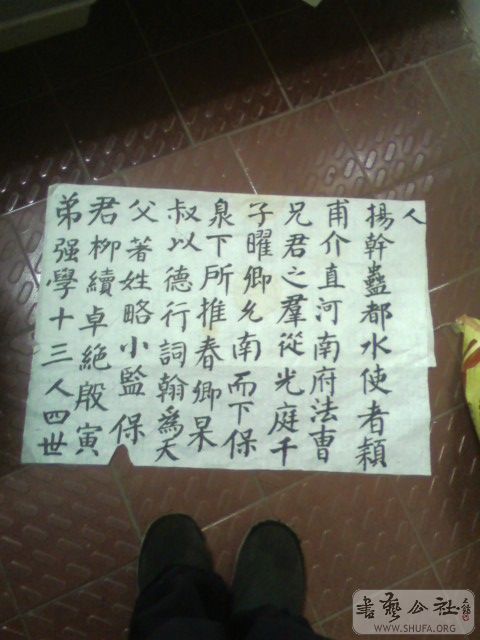 人
揚幹蠱都水使者穎
甫介直河南府法曹
兄君之羣從光庭千
子曜卿允南而下保
泉下所推春卿杲
叔以德行詞翰為天
父著姓略小監保
君柳續卓絕殷寅
弟强學十三人四世
書藝公社
WWW.SHUFA.ORG